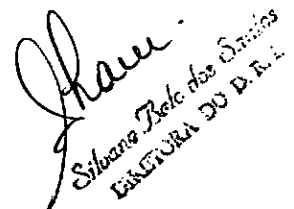 Silvana Belo dos Santos
DIRETORA DO D. R. I.